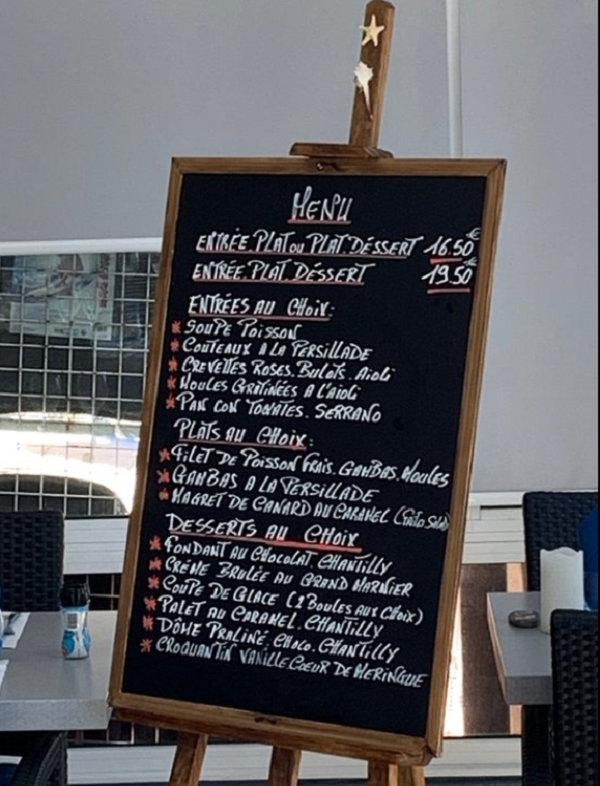 MENU
ENTRÉE.PLAT OU PLAT.DÉSSERT 16.50€
ENTRÉE.PLAT.DÉSSERT 19.50€
ENTRÉES AU CHOIX:
* SOUPE POISSON
* COUTEAUX A LA PERSILLADE
* CREVETTES ROSES. BULOTS. AIOLI
* MOULES GRATINÉES A L'AIOLI
* PAN CON TOMATES. SERRANO
PLATS AU CHOIX:
* FILET DE POISSON FRAIS. GAMBAS. MOULES
* GAMBAS A LA PERSILLADE
* MAGRET DE CANARD AU CARAMEL
DESSERTS AU CHOIX
* FONDANT AU CHOCOLAT. CHANTILLY
* CRÈME BRULÉE AU GRAND MARNIER
* COUPE DE GLACE (2 BOULES AUX CHOIX)
* PALET AU CARAMEL. CHANTILLY
* DÔME PRALINÉ. CHOCO. CHANTILLY
* CROQUANTIN VANILLE COEUR DE MERINGUE